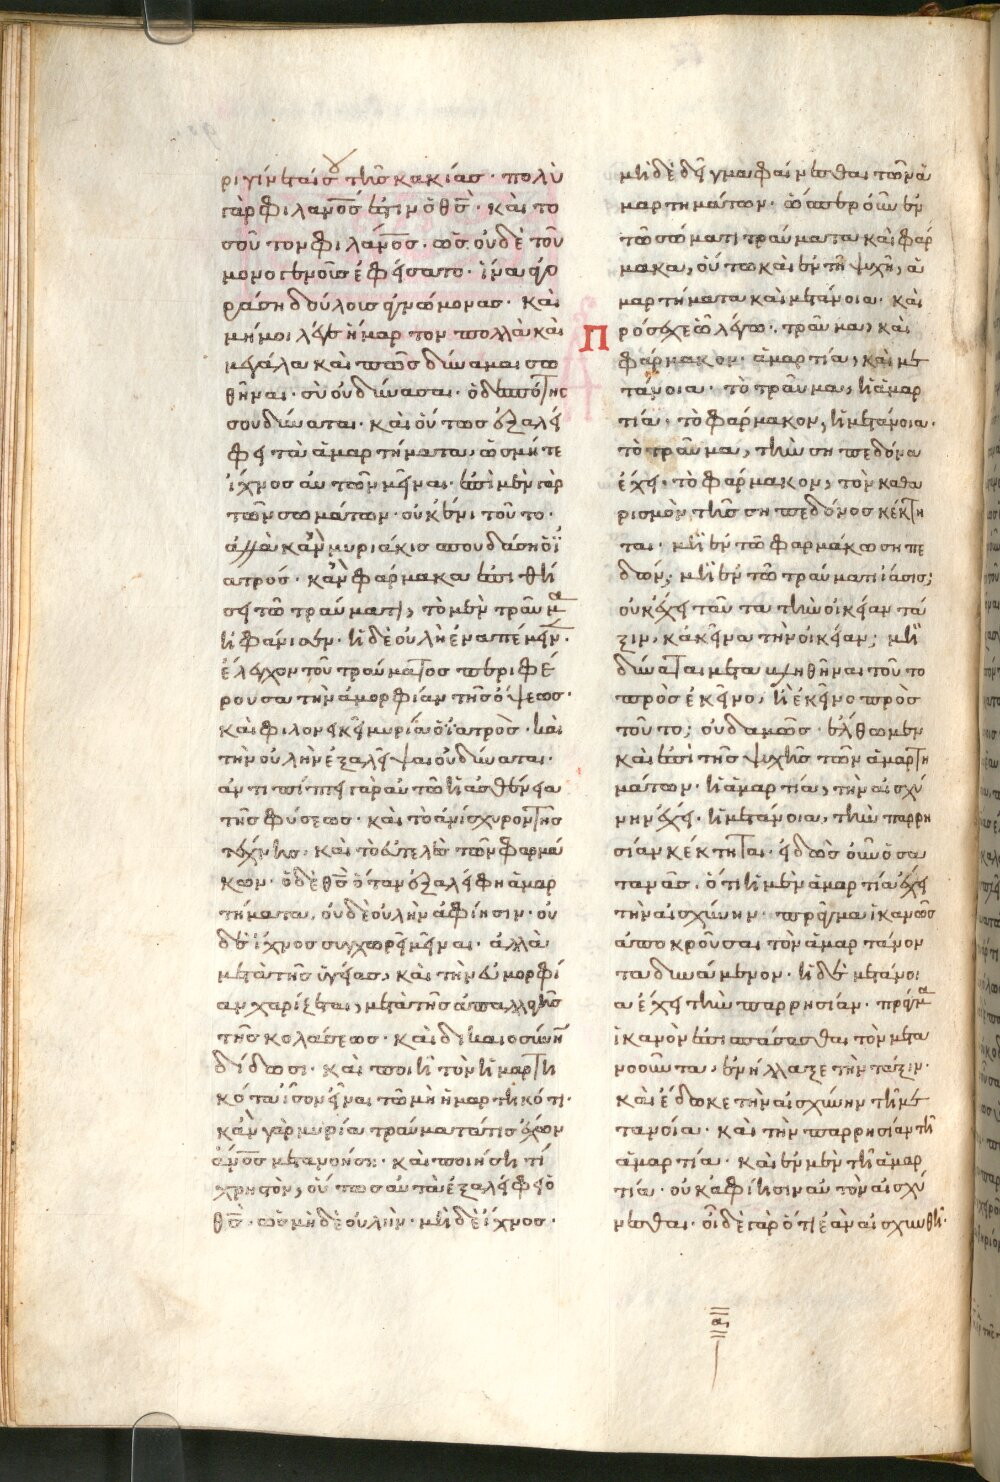 ριγίνεταί σου τῆς κακίας· πολὺ
γὰρ φιλάνος ἐστιν ὁ θς· καὶ το
σοῦτον φιλάνος· ὡς οὐδὲ τοῦ
μονογενοῦς ἐφείσατο· ἵνα ἀγο
ράση δούλους ἀγνώμονας· καὶ
μήμοι λέγε ἥμαρτον πολλὰ καὶ
μεγάλα καὶ πῶς δύναμαι σω
θῆναι· σὺ οὐ δύνασαι· ὁ δεσπότης
σου δύναται· καὶ οὕτως ἐξαλεί
φει τὰ ἁμαρτήματα, ὡς μήτε
ἴχνος αὐτῶν μεῖναι· ἐπὶ μὲν γὰρ
τῶν σωμάτων· οὐκ ἔνι τοῦτο·
ἀλλὰ κἂν μυριάκις σπουδάση ὁ ἰ
ατρός· κἂν φάρμακα ἐπιθῆ
σει τῶ τραύματι, τὸ μὲν τραῦμα
ἠφάνισεν· ἡ δὲ οὐλὴ ἐναπέμεινεν·
ἔλεγχον τοῦ τραύματος περιφέ
ρουσα τὴν ἀμορφίαν τῆς ὄψεως·
καὶ φιλονεικεῖ μυρία ὁ ἰατρὸς· καὶ
τὴν οὐλὴν ἐξαλεῖψαι οὐ δύναται·
ἀντιπίπτει γὰρ αὐτῶ ἡ ἀσθένεια
τῆς φύσεως· καὶ τὸ ἀνίσχυρον τῆς
τέχνης· καὶ τὸ εὐτελὲς τῶν φαρμά
κων· ὁ δὲ θς ὅταν ἐξαλείφη ἁμαρ
τήματα, οὐδὲ οὐλὴν ἀφίησιν· οὐ
δὲ ἴχνος συγχωρεῖ μεῖναι· ἀλλὰ
μετὰ τῆς ὑγείας, καὶ τὴν εὐμορφί
αν χαρίζεται, μετὰ τῆς ἀπαλλαγῆς
τῆς κολάσεως· καὶ δικαιοσύνην
δίδωσι· καὶ ποιεῖ τὸν ἡμαρτη
κότα ἴσον εἶναι τῶ μὴ ἡμαρτηκότι·
κἂν γὰρ μυρία τραύματά τις ἔχων
ἄνος μετανοήση· καὶ ποιήση τί
χρηστὸν, οὕτως αὐτὰ ἐξαλείφει ὁ
θς· ὡς μηδὲ οὐλὴν· μὴ δὲ ἴχνος·
μὴ δὲ δεῖγμα φαίνεσθαι τῶν ἁ
μαρτημάτων· ὥσπερ οὖν ἐν
τῶ σώματι τραύματα καὶ φάρ
μακα, οὕτω καὶ ἐν τῆ ψυχῆ, ἁ
μαρτήματα καὶ μετάνοια· καὶ
Πρόσεχε ὧ λέγω· τραῦμα, καὶ
φάρμακον· ἁμαρτία, καὶ με
τάνοια· τὸ τραῦμα, ἡ ἁμαρ
τία· τὸ φάρμακον, ἡ μετάνοια·
τὸ τραῦμα, τὴν σηπεδόνα
ἔχει· τὸ φάρμακον, τὸν καθα
ρισμὸν τῆς σηπεδόνος κέκτη
ται· μὴ ἐν τῶ φαρμάκω σηπε
δών; μὴ ἐν τῶ τραύματι ἴασις;
οὐκ ἔχει ταῦτα τὴν οἰκείαν τά
ξιν, κἀκεῖνα τὴν οἰκείαν; μὴ
δύναται μεταβληθῆναι τοῦτο
πρὸς ἐκεῖνο, ἢ ἐκεῖνο πρὸς
τοῦτο; οὐδαμῶς· ἔλθωμεν
καὶ ἐπὶ τῆς ψυχῆς τῶν ἁμαρτη
μάτων· ἡ ἁμαρτία, τὴν αἰσχύ
νην ἔχει· ἡ μετάνοια, τὴν παρρη
σίαν κέκτηται· εἰδὼς οὖν ὁ σα
τανᾶς, ὅτι ἡ μὲν ἁμαρτία ἔχει
τὴν αἰσχύνην· πρᾶγμα ἱκανῶς
ἀποκροῦσαι τὸν ἁμαρτάνον
τα δυνάμενον· ἡ δὲ μετάνοι
α ἔχει τὴν παρρησίαν· πρᾶγμα
ἱκανὸν ἐπισπάσασθαι τὸν μετα
νοοῦντα, ἐνήλλαξε τὴν τάξιν·
καὶ ἔδωκε τὴν αἰσχύνην τῆ με
τανοία· καὶ τὴν παρρησίαν τῆ
ἁμαρτία· καὶ ἐν μὲν τῆ ἁμαρ
τία· οὐκ ἀφίησιν αὐτὸν αἰσχύ
νεσθαι· οἶδε γὰρ ὅτι ἐὰν αἰσχυνθῆ·